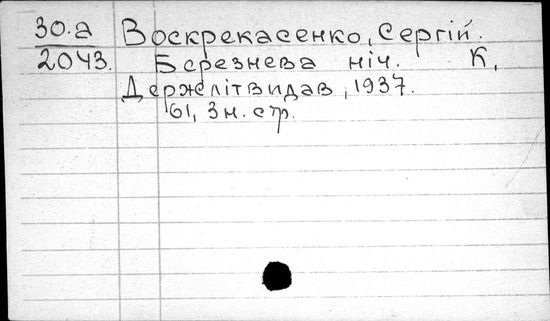 30.а Воскрекасенко, Сергій.
2043. Березнева ніч. К,
Держлітвидав, 1937.
61, 3 н. стр.